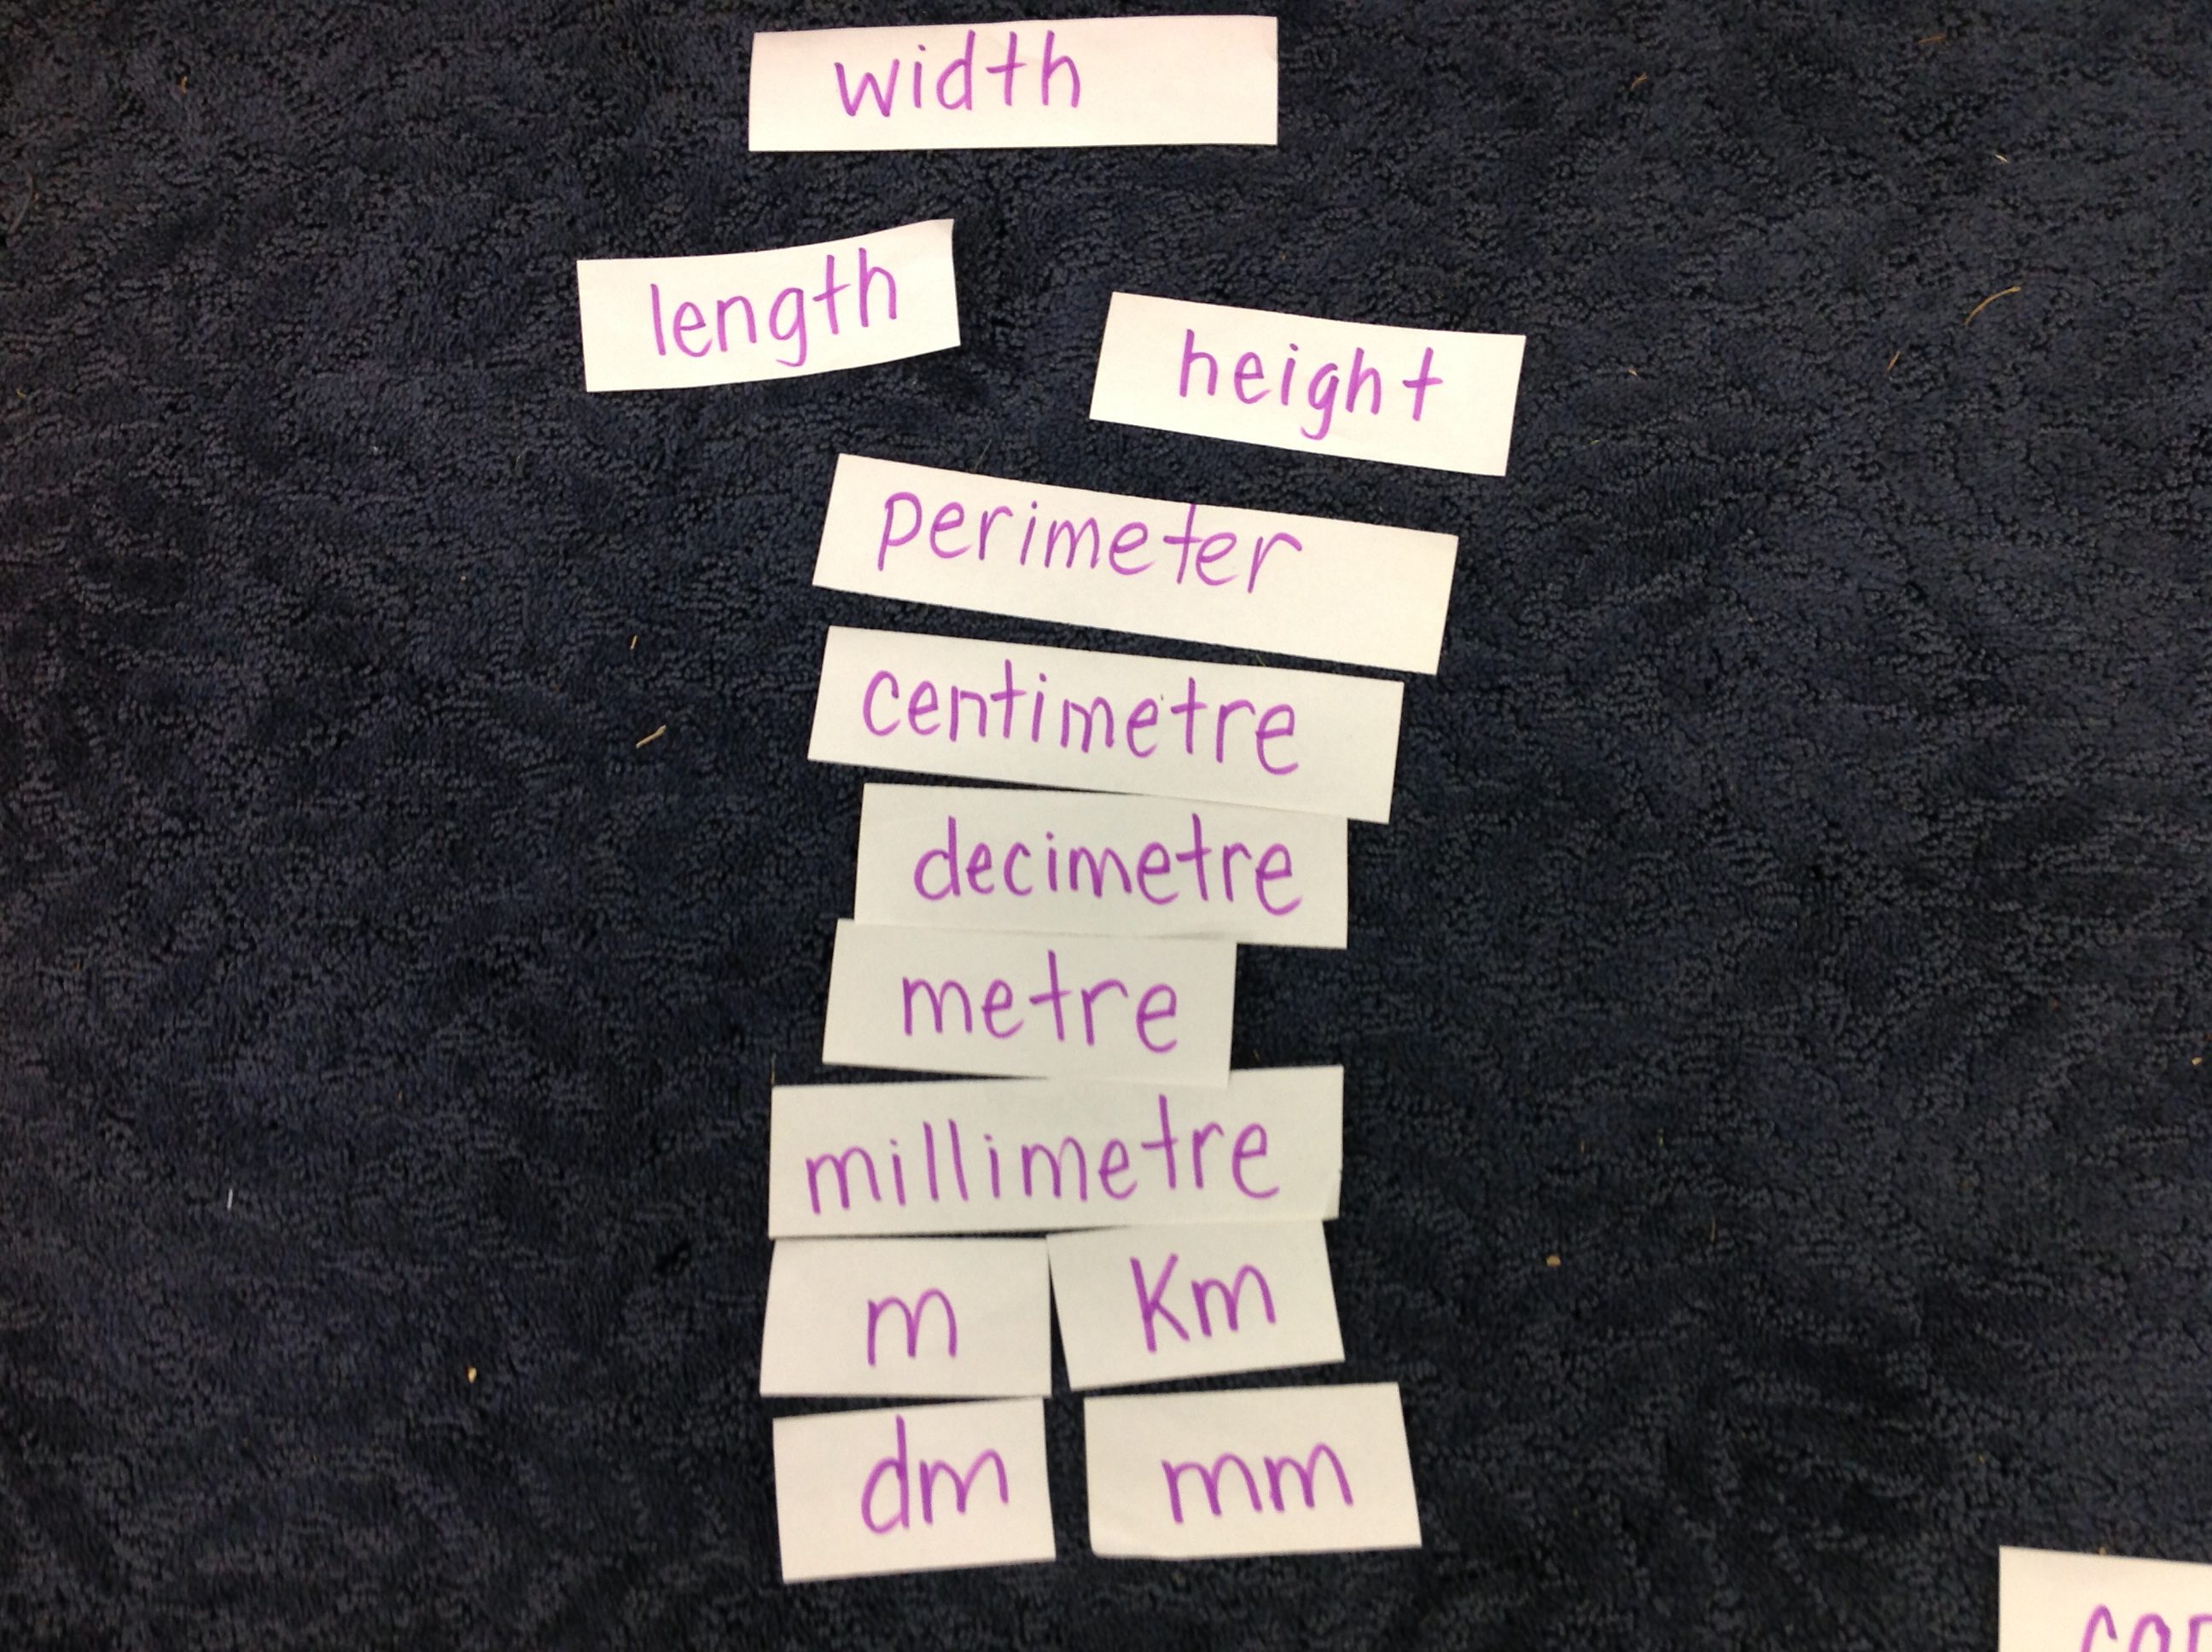 width
length
height
perimeter
centimetre
decimetre
metre
millimetre
m
Km
dm
mm